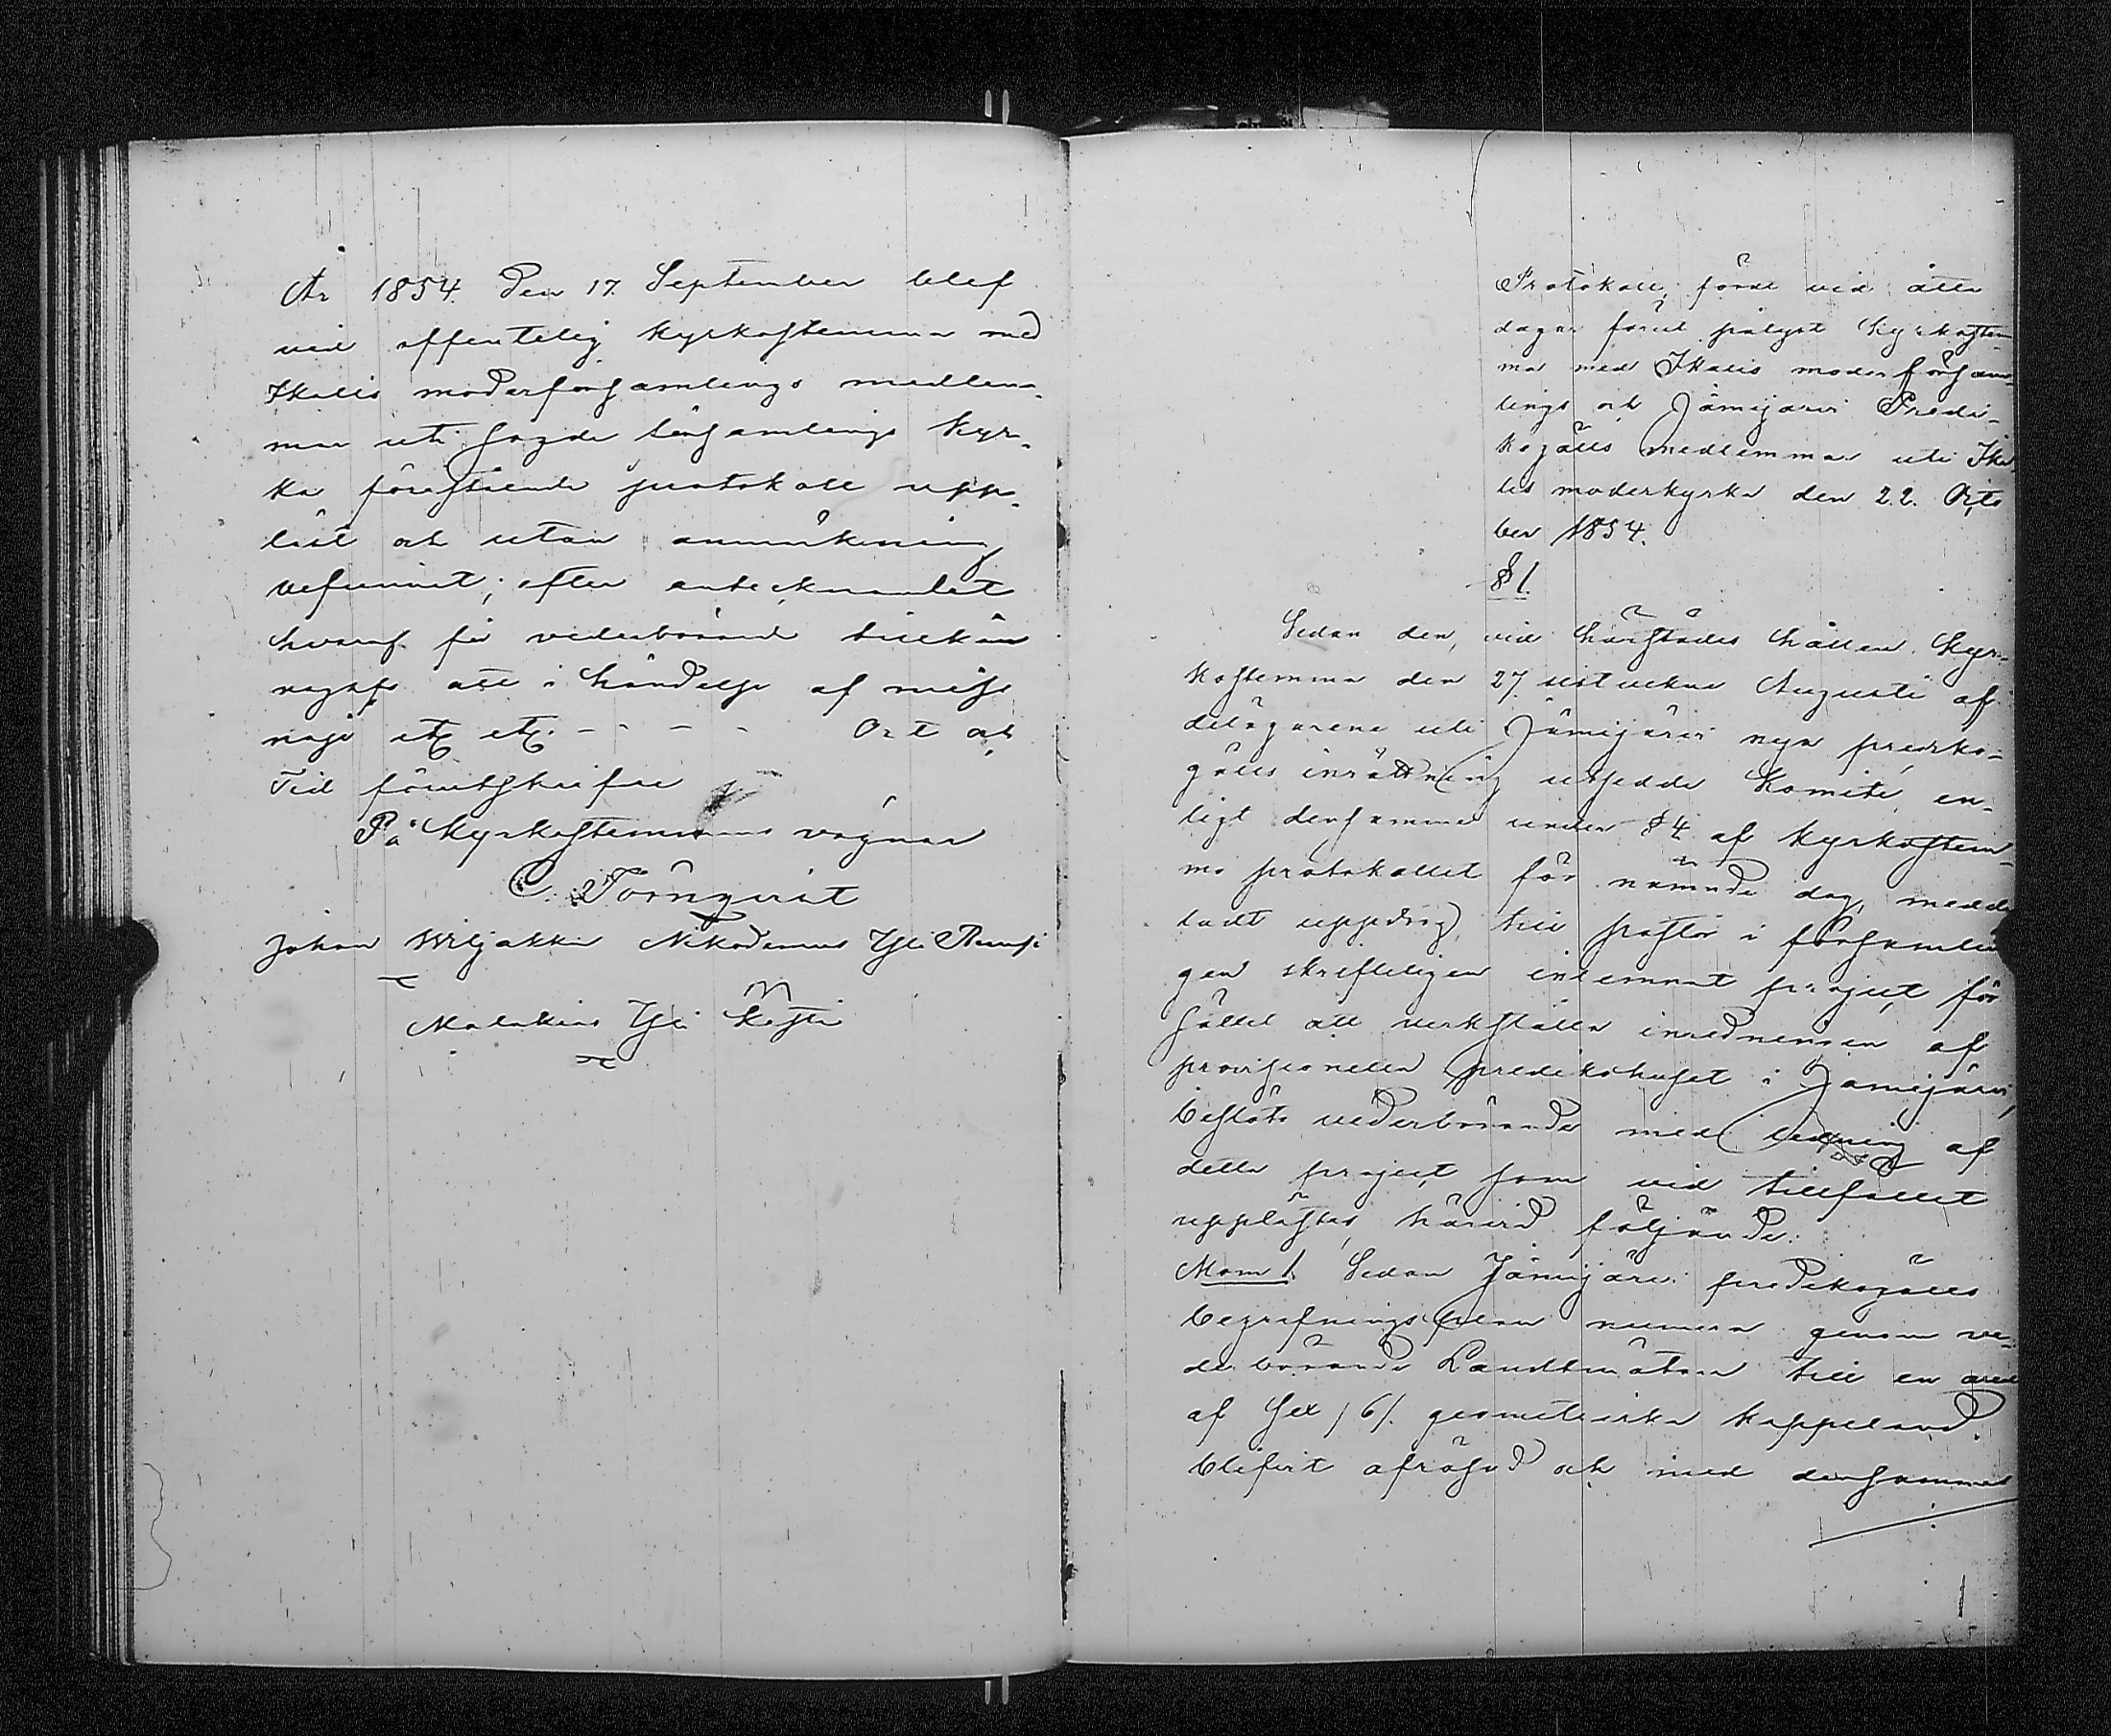 År 1854. Den 17. September blef
vid offentelig kyrkostemma med
Ikalis moderförsamlings medlem-
mar uti sagde församlings kyr-
ka förestående protokoll upp-
läst och utan anmärkning
befunnit; efter antecknandet
hvaraf för vederbörande tillkän
nagafs att i händelse af miss
nöje etc etc. - - - - Ort och
Tid förutskrifne
På Kyrkostemmans vägnar
C. Törnqvist
Johan Wiljakka Nikodemus Yli Runsi
Malakias Yli Kesti
Protokoll, fördt vid åtta
dagar förut pålyst kyrkostem
ma med Ikalis moderförsam-
lings och Jämijärvi Predi-
kogälls medlemmar uti Ika
lis moderkyrka den 22. Octo
ber 1854.
§ 1.
Sedan den, vid härstädes hållen Kyr-
kostemma den 27. sistvekne Augusti af
delägarena uti Jämijärvi nya prediko-
gälls inrättning utsedde Komité, en-
ligt densamma under § 4 af kyrkostem-
mo protokollet för nämnde dag, medde
ladt uppdrag, till pastor i församlin
gen skrifteligen inlemnat project för
sättet att verkställa inredningen af
provisionella predikohuset i Jämijärvi,
beslöts vederbörande med ledning af
detta project som vid tillfället
upplästes, härvid följande:
Mom 1. Sedan Jämijärvi predikogälls
begrafningsplan numera genom ve-
derbörande Landtmätare till en areal
af sex /6/. geometriska kappeland.
blifvit afrösad och med densamma